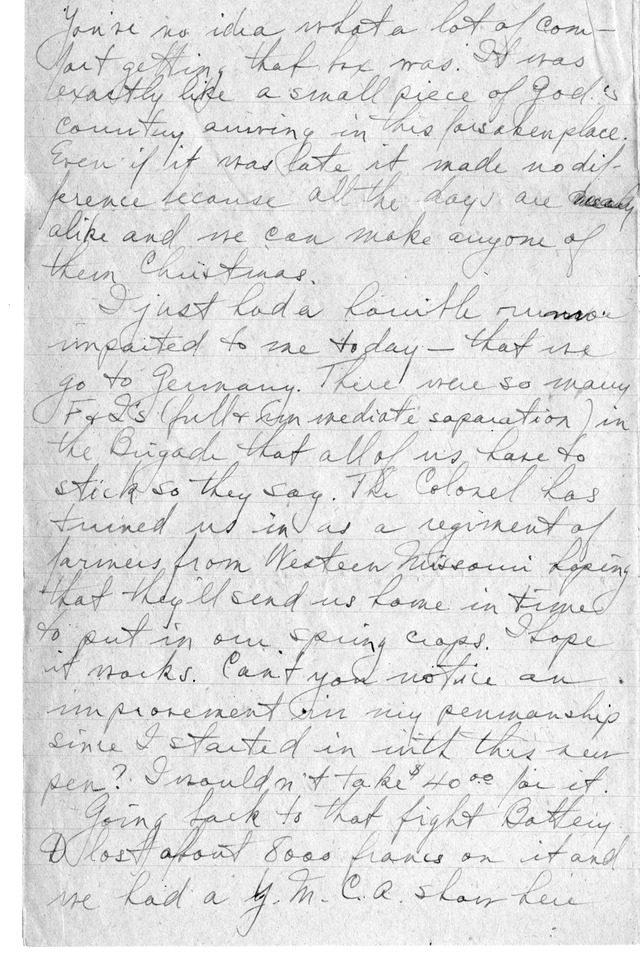 You've no idea what a lot of com-
fort getting that box was. It was
exactly like a small piece of God's
country arriving in this forsaken place.
Even if it was late it made no dif-
ference because all the days are
alike and we can make anyone of
them Christmas.
I just had a horrible rumor
imparted to me today — that we
go to Germany. There were so many
F & I's (full & immediate separation) in
the Brigade that all of us have to
stick so they say. The Colonel has
turned us in as a regiment of
farmers from Western Missouri hoping
that they'll send us home in time
to put in our spring crops. I hope
it works. Can't you notice an
improvement in my penmanship
since I started in with this new
pen? I wouldn't take $40.00 for it.
Going back to that fight Battery
D lost about 8000 francs on it and
we had a Y.M.C.A. show here